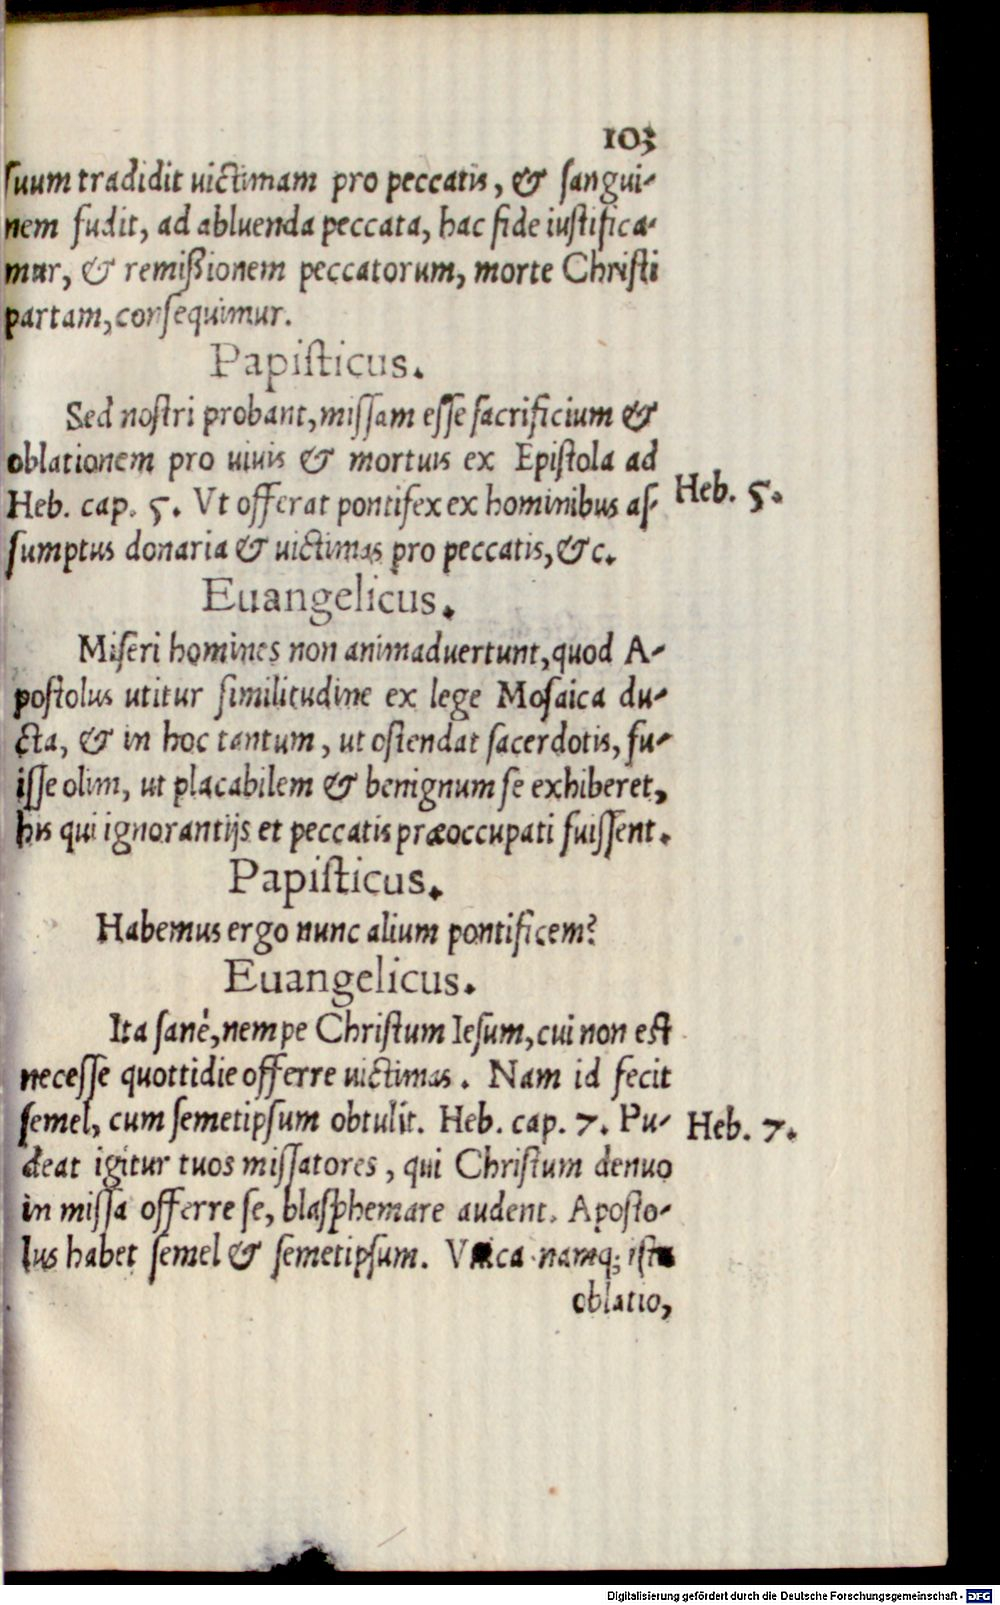 103
suum tradidit uictimam pro peccatis, & sangui-
nem fudit, ad abluenda peccata, hac fide iustifica-
mur, & remißionem peccatorum, morte Christi
partam, consequimur.
Papisticus.
Sed nostri probant, missam esse sacrificium &
oblationem pro uiuis & mortuis ex Epistola ad
Heb. cap. 5. Vt offerat pontifex ex hominibus as-
Heb. 5.
sumptus donaria & uictimas pro peccatis, &c.
Euangelicus.
Miseri homines non animaduertunt, quod A-
postolus utitur similitudine ex lege Mosaica du-
cta, & in hoc tantum, ut ostendat sacerdotis, fu-
isse olim, ut placabilem & benignum se exhiberet,
his qui ignorantijs et peccatis præoccupati fuissent.
Papisticus.
Habemus ergo nunc alium pontificem?
Euangelicus.
Ita sanè, nempe Christum Iesum, cui non est
necesse quottidie offerre uictimas. Nam id fecit
semel, cum semetipsum obtulit. Heb. cap. 7. Pu-
Heb. 7.
deat igitur tuos missatores, qui Christum denuo
in missa offerre se, blasphemare audent. Aposto-
lus habet semel & semetipsum. Vnica namq; ista
oblatio,
Digitalisierung gefördert durch die Deutsche Forschungsgemeinschaft - DFG